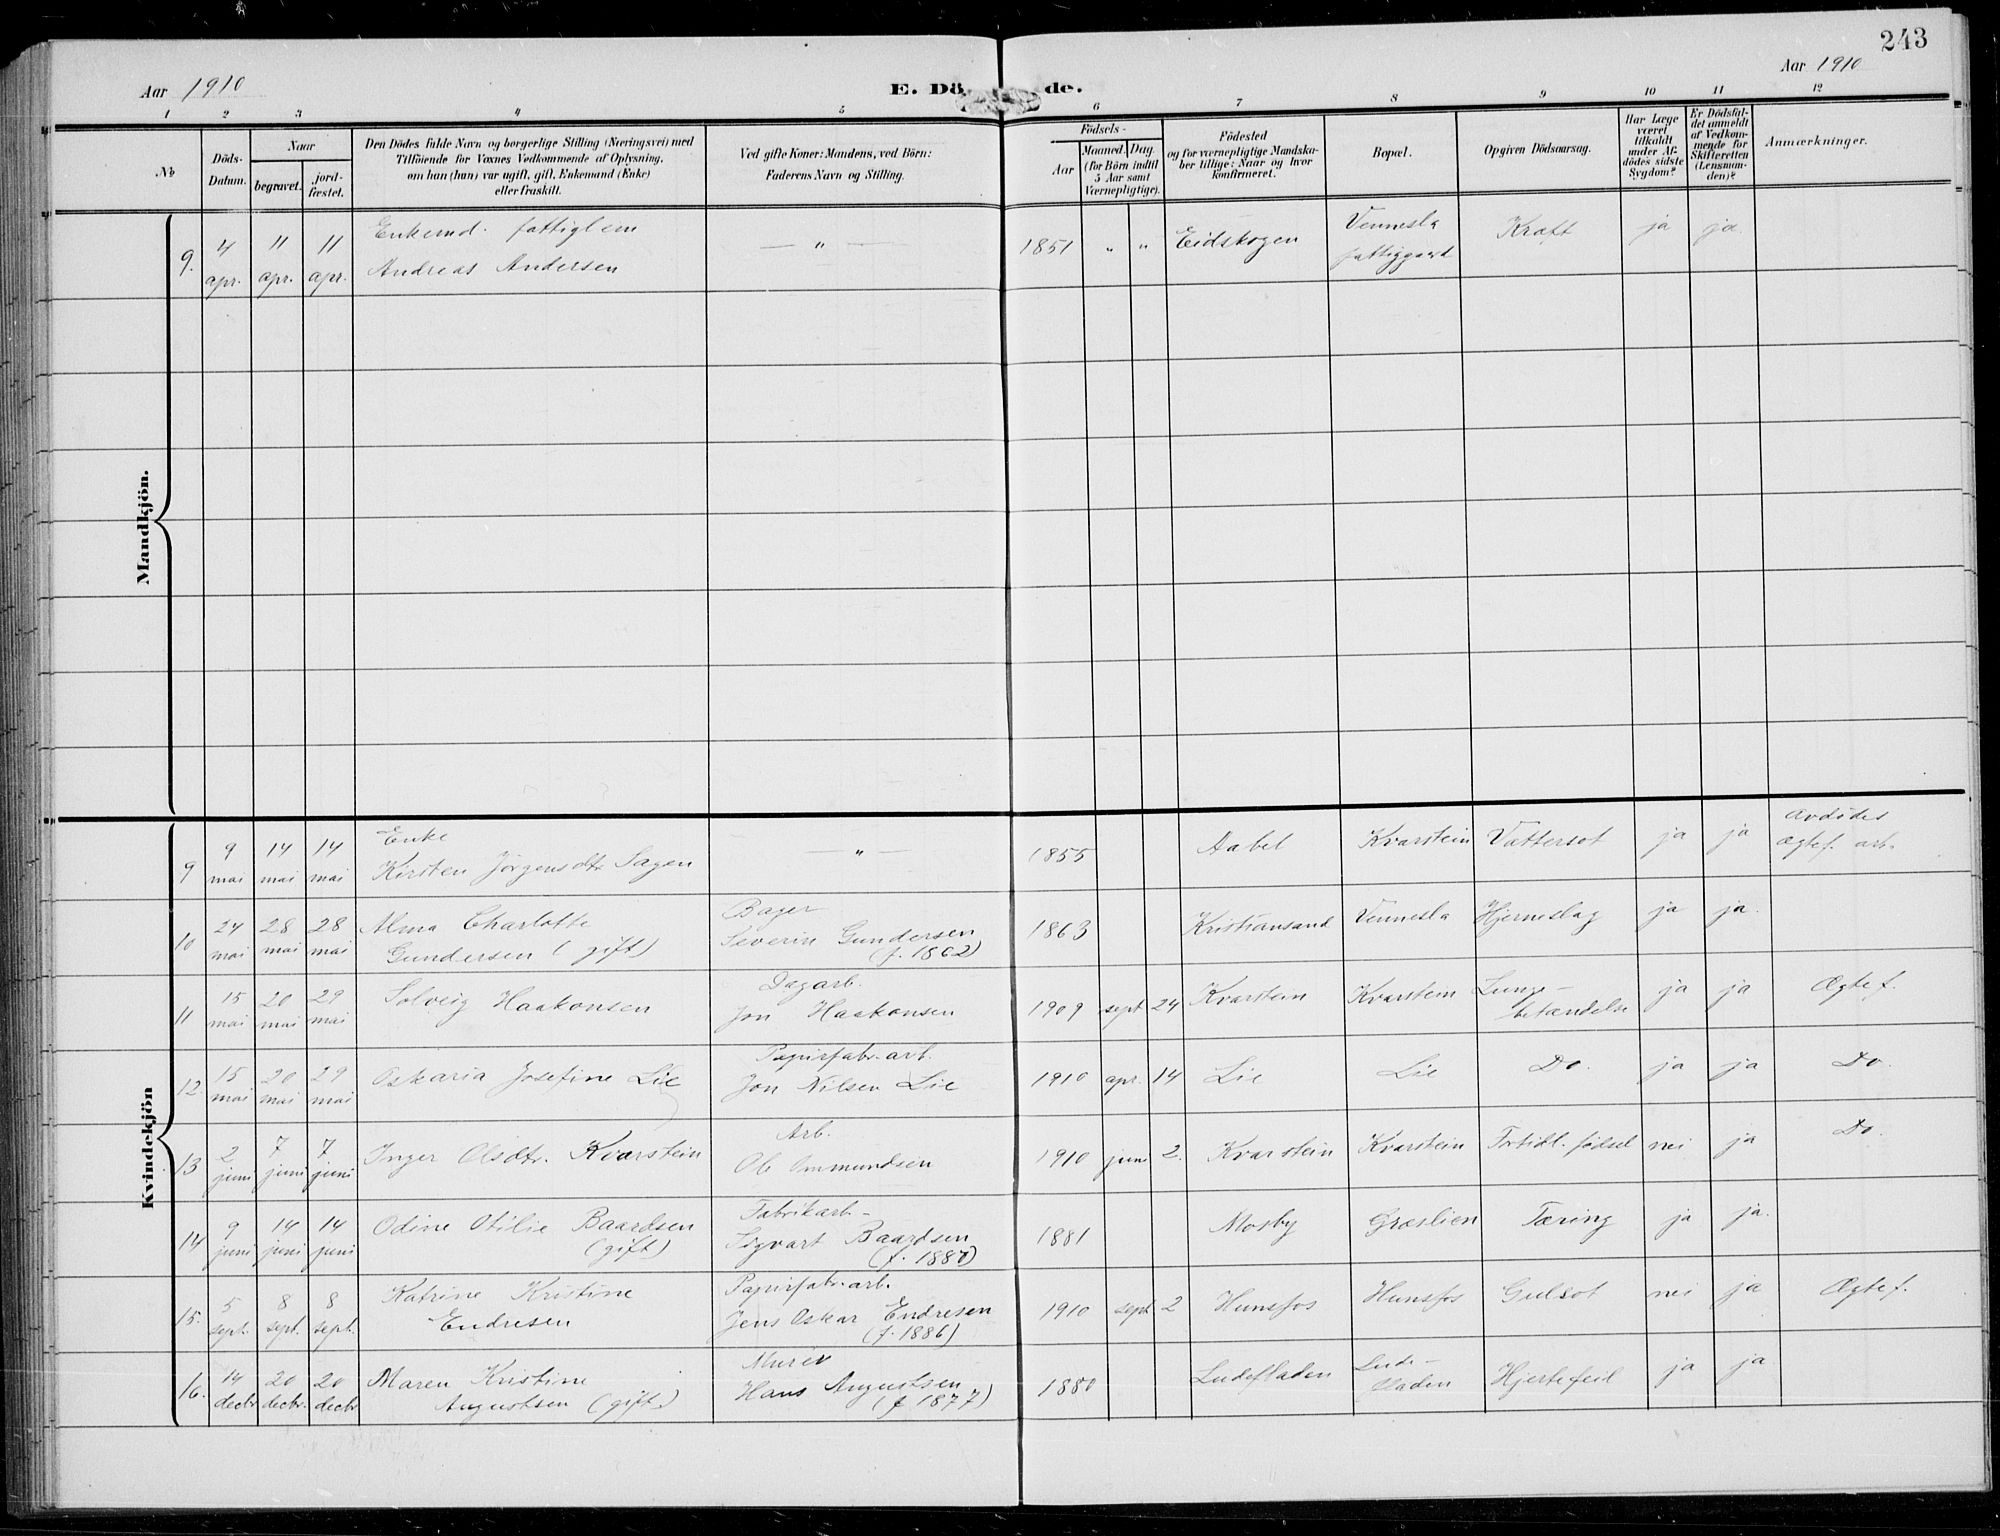 243
Aar 1910
E. Dö de.
Aar 1910
1 2 3 4 5 6 7 8 9 10 11 12
No
Döds-Datum.
Naar
begravet.
jord-fæstet.
Den Dödes fulde Navn og borgerlige Stilling (Næringsvei) med
Tilföiende for Voxnes Vedkommende af Oplysning,
om han (hun) var ugift, gift, Enkemand (Enke)
eller fraskilt.
Ved gifte Koner: Mandens, ved Börn:
Faderens Navn og Stilling.
Födsels-
Aar
Maaned. Dag
(for Börn indtil
5 Aar samt
Værnepligtige).
Födested
og for værnepligtige Mandska-
ber tillige: Naar og hvor
konfirmeret.
Bopæl.
Opgiven Dödsaarsag.
Har Læge
været
tilkaldt
under Af-
dödes sidste
Sygdom?
Er Dödsfal-
det anmeldt
af Vedkom-
mende for
Skifteretten
(Lensman-
den)?
Anmærkninger.
Mandkjön.
9. 4 apr. 11 apr. 11 apr. Enkemd. fattiglem
Andreas Andersen — " — 1851 " " Eidskogen Vennesla
fattiggaard Kræft ja ja.
Kvindekjön
9 9 mai 14 mai 14 mai Enke
Kirsten Jörgensdtr Sagen — " — 1855 Aabel Kvarstein Vattersot ja ja Avdödes
Ægtef. arb.
10 24 mai 28 mai 28 mai Alma Charlotte
Gundersen (gift) Bager
Severin Gundersen
(f. 1862) 1863 Kristiansand Vennesla Hjerneslag ja ja.
11 15 mai 20 mai 29 mai Solveig Haakonsen Dagarb.
Jon Haakonsen 1909 sept 24 Kvarstein Kvarstein Lunge-
betændelse ja ja Ægtef.
12. 15 mai 20 mai 29 mai Oskaria Josefine Lie Papirfabr. arb.
Jon Nilsen Lie 1910 apr. 14 Lie Lie Do. ja ja Do.
13 2 juni 7 juni 7 juni Inger Olsdtr. Kvarstein Arb.
Ole Ommundsen 1910 juni 2. Kvarstein Kvarstein Fortidl. födsel nei ja Do.
14 9 juni 14 juni 14 juni Odine Otilie Baardsen
(gift) Fabrikarb-
Sigvart Baardsen
(f. 1880) 1881 Mosby Graslien Tæring ja ja.
15. 5 sept. 8 sept. 8 sept. Katrine Kristine
Endresen Papirfabr. arb.
Jens Oskar Endresen
(f. 1886) 1910 sept 2 Hunsfos Hunsfos Gulsot nei ja Ægtef.
16. 14 decbr 20 decbr. 20 decbr Maren Kristine
Augustsen (gift.) Murer
Hans Augustsen
(f 1877) 1880 Ludefladen Lude-
fladen Hjertefeil ja ja